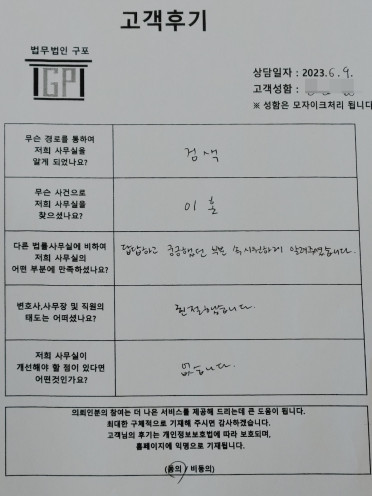 고객후기
법무법인 구포
IGPI
상담일자 : 2023.6.9.
고객성함 :
※ 성함은 모자이크처리 됩니다
무슨 경로를 통하여
저희 사무실을
알게 되었나요?
검색
무슨 사건으로
저희 사무실을
찾으셨나요?
이혼
다른 법률사무실에 비하여
저희 사무실의
어떤 부분에 만족하셨나요?
답답하고 궁금했던 부분 속시원하게 알려주셨습니다.
변호사,사무장 및 직원의
태도는 어떠셨나요?
친절했습니다.
저희 사무실이
개선해야 할 점이 있다면
어떤것인가요?
없습니다.
의뢰인분의 참여는 더 나은 서비스를 제공해 드리는데 큰 도움이 됩니다.
최대한 구체적으로 기재해 주시면 감사하겠습니다.
고객님의 후기는 개인정보보호법에 따라 보호되며,
홈페이지에 익명으로 기재됩니다.
(동의 / 비동의)